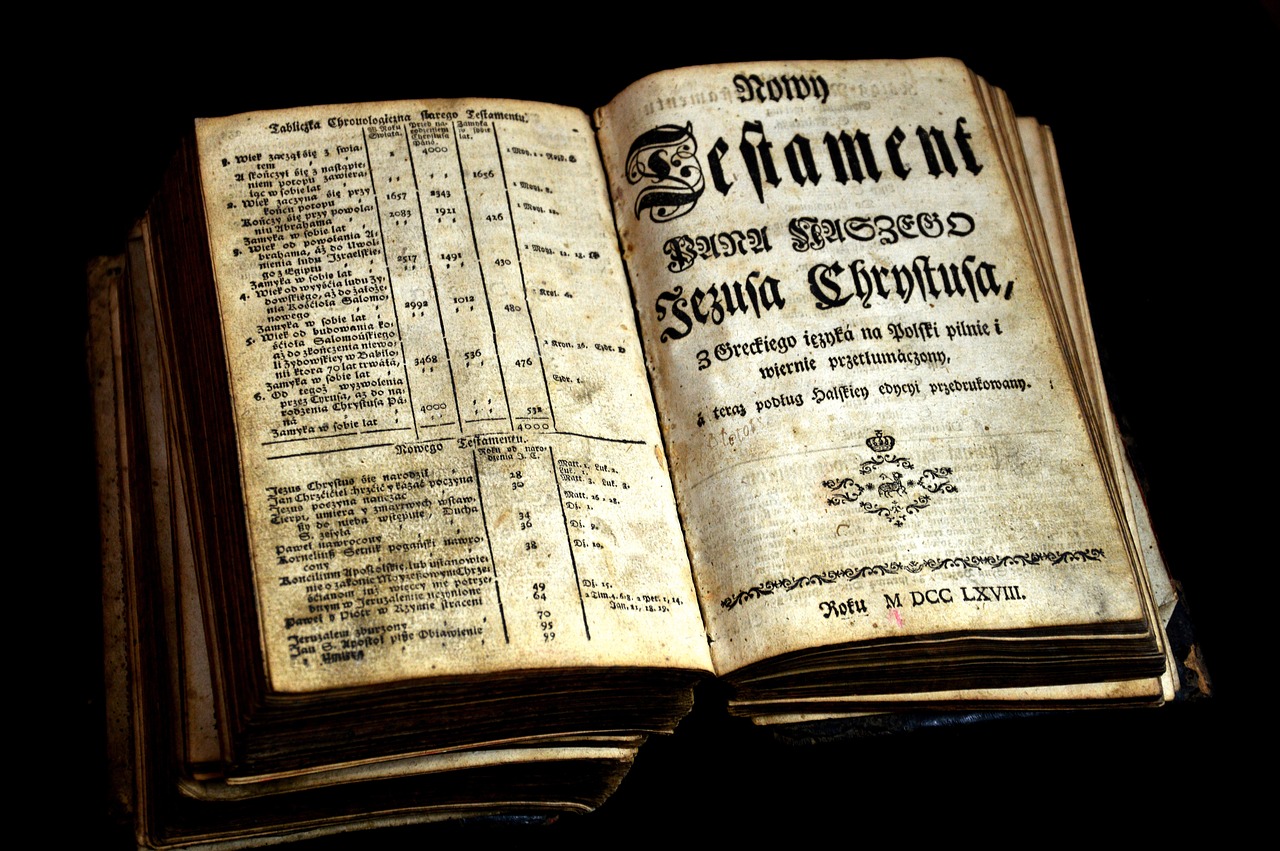 Tabliczka Chronologiczna starego Testamentu.
W Roku Swiata.
Przed na-
rodzeniem
Chrystusa
Pana.
Zamyka
w sobie
lat.
1. Wiek zaczął się z świa-
tem 1 4000 1 Moy. 1
A skończył się z nastąpie-
niem potopu zawiera-
iąc w sobie lat 1656
2. Wiek zaczyna się przy
końcu potopu 1657 2343
Kończy się przy powoła-
niu Abrahama 2083 1921
Zamyka w sobie lat 426
3. Wiek od powołania A-
brahama, aż do Uwol-
nienia ludu Izraelskie-
go z Egiptu 2517 1491
Zamyka w sobie lat 430
4. Wiek od wyyścia ludu Zy-
dowskiego, aż do założe-
nia Kościoła Salomo-
nowego 2992 1012
Zamyka w sobie lat 480
5. Wiek od budowania ko-
ścioła Salomońskiego
aż do zkończenia niewo-
li Zydowskiey w Babilo-
nii ktora 70 lat trwała, 3468 536
Zamyka w sobie lat 476
6. Od tegoż wyzwolenia
przez Cyrusa, aż do na-
rodzenia Chrystusa Pa-
na 4000
Zamyka w sobie lat 532
4000
Nowego Testamentu.
Roku od naro-
dzenia J. C.
Jezus Chrystus się narodził
Jan Chrzciciel krzcić y kazać poczyna 28
Jezus poczyna nauczać 30
Cierpi, umiera y zmartwych wstaw-
szy do nieba wstępuie, Ducha
S. zsyła 34
Paweł nawrocony 36 Dz. 9.
Korneliusz Setnik pogański nawro-
cony 38 Dz. 10.
Koncilium Apostolskie, lub ustanowie-
nie o zakonie Moyżeszowym Chrze-
ścianom iuż więcey nie potrze-
bnym w Jeruzalemie uczynione 49 Dz. 15.
Paweł y Piotr w Rzymie straceni 64
Jeruzalem zburzony 70
Jan S. Apostoł pisze Obiawienie 95
y umiera 99
Nowy
Testament
PANA NASZEGO
Jezusa Chrystusa,
Z Greckiego ięzyká na Polski pilnie i
wiernie przetłumáczony,
á teraz podług Halskiey edycyi przedrukowany.
Roku M DCC LXVIII.